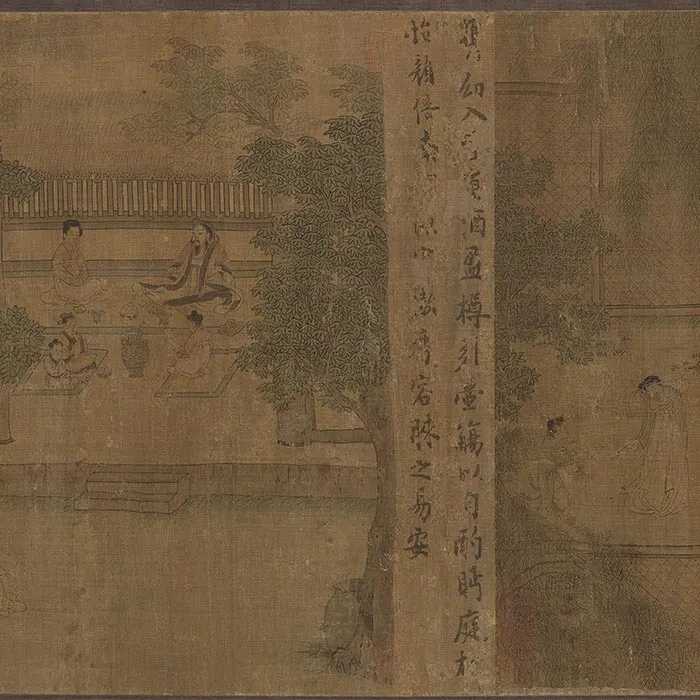 攜幼入室有酒盈樽引壺觴以自酌眄庭柯
怡顏倚南窗以寄傲審容膝之易安